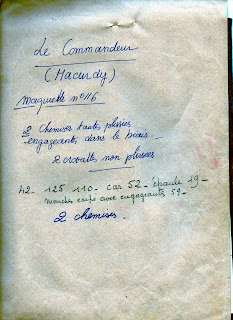 Le Commandeur
(Macurdy)
Maquette n° 116
2 Chemises toutes plissées
engageantes dans le biais.
2 cravattes non plissées
42. 125 110 - car 52 - épaule 19 -
manches coupe avec engageantes 59 -
2 chemises.